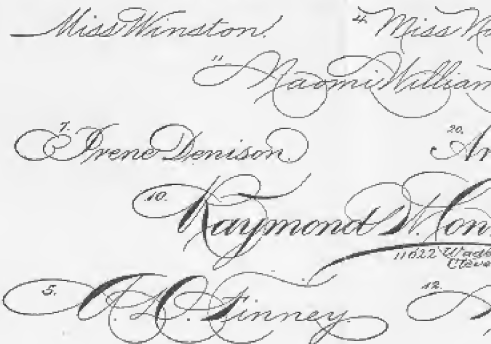 Miss Winston.
4. Miss
11. Naomi William
7. Irene Denison.
20. Ar
10. Raymond W. Con
11622 Wade
Cleve
5. A. D. Finney
12.